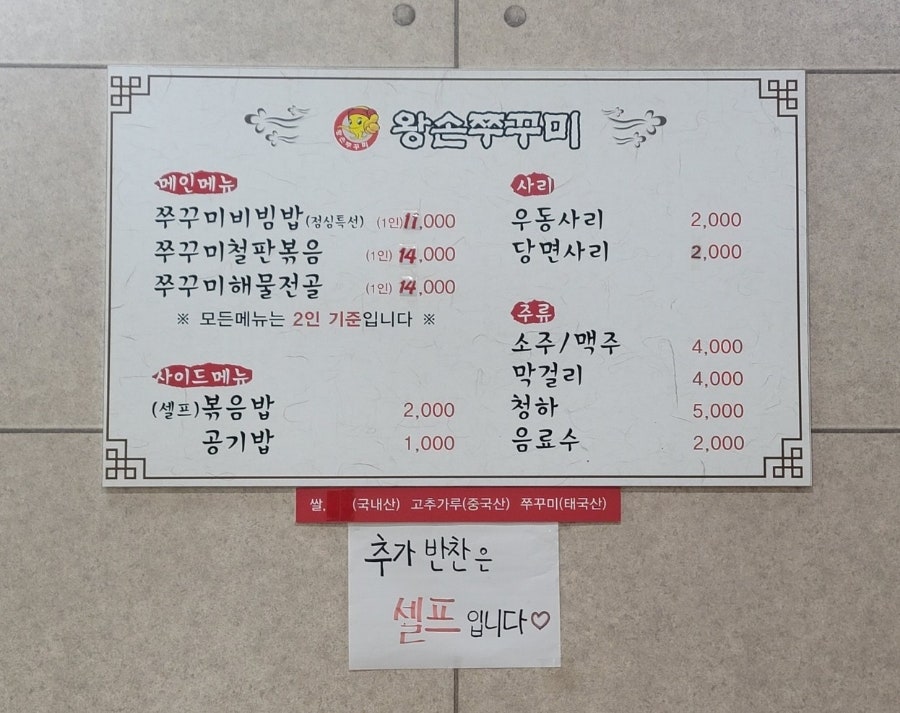 왕손쭈꾸미
메인메뉴
쭈꾸미비빔밥(점심특선) (1인)11,000
쭈꾸미철판볶음 (1인)14,000
쭈꾸미해물전골 (1인)14,000
※ 모든메뉴는 2인 기준입니다 ※
사이드메뉴
(셀프)볶음밥 2,000
공기밥 1,000
사리
우동사리 2,000
당면사리 2,000
주류
소주/맥주 4,000
막걸리 4,000
청하 5,000
음료수 2,000
쌀, (국내산) 고추가루(중국산) 쭈꾸미(태국산)
추가 반찬은
셀프입니다♡